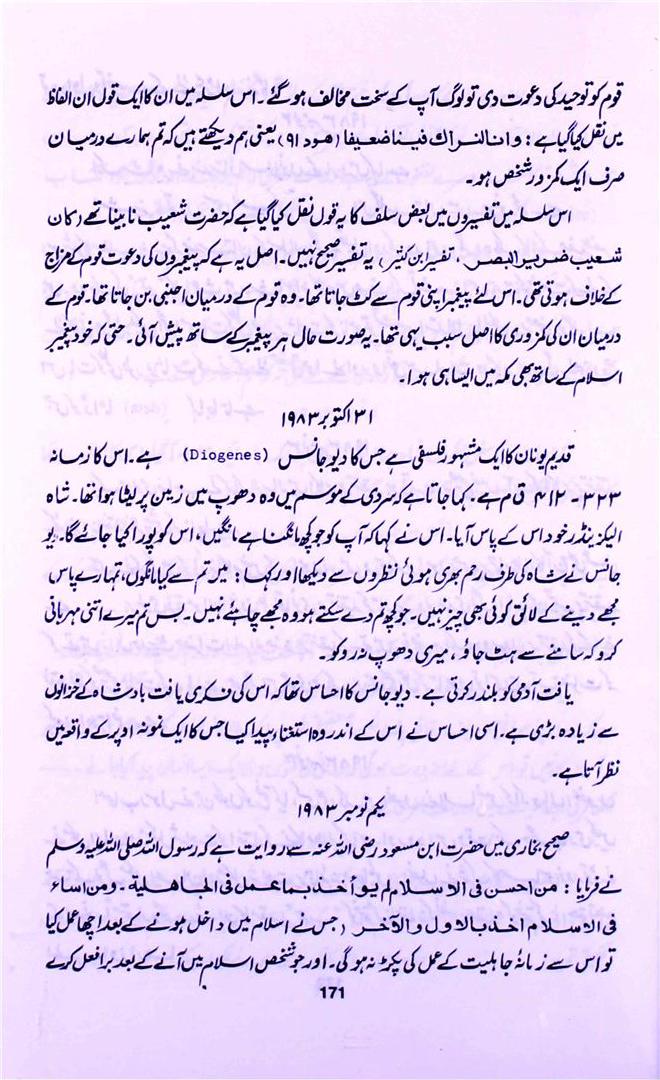 قوم کو توحید کی دعوت دی تو لوگ آپ کے سخت مخالف ہو گئے۔ اس سلسلہ میں ان کا ایک قول ان الفاظ
میں نقل کیا گیا ہے : وانا لنراك فينا ضعيفا (ھود ۹۱) یعنی ہم دیکھتے ہیں کہ تم ہمارے درمیان
صرف ایک کمزور شخص ہو۔
اس سلسلہ میں تفسیروں میں بعض سلف کا یہ قول نقل کیا گیا ہے کہ حضرت شعیب نابینا تھے (کان
شعیب ضریر البصر، تفسیر ابن کثیر) یہ تفسیر صحیح نہیں۔ اصل یہ ہے کہ پیغمبروں کی دعوت قوم کے مزاج
کے خلاف ہوتی تھی۔ اس لئے پیغمبر اپنی قوم سے کٹ جاتا تھا۔ وہ قوم کے درمیان اجنبی بن جاتا تھا۔ قوم کے
درمیان ان کی کمزوری کا اصل سبب یہی تھا۔ یہ صورت حال ہر پیغمبر کے ساتھ پیش آئی۔ حتی کہ خود پیغمبر
اسلام کے ساتھ بھی مکہ میں ایسا ہی ہوا۔
۳۱ اکتوبر ۱۹۸۳
قدیم یونان کا ایک مشہور فلسفی ہے جس کا دیو جانس (Diogenes) ہے۔ اس کا زمانہ
۳۲۳ - ۴۱۲ ق م ہے۔ کہا جاتا ہے کہ سردی کے موسم میں وہ دھوپ میں زمین پر لیٹا ہوا تھا۔ شاہ
الیگزینڈر خود اس کے پاس آیا۔ اس نے کہا کہ آپ کو جو کچھ مانگنا ہے مانگیں، اس کو پورا کیا جائے گا۔ دیو
جانس نے شاہ کی طرف رحم بھری ہوئی نظروں سے دیکھا اور کہا : میں تم سے کیا مانگوں، تمہارے پاس
مجھے دینے کے لائق کوئی بھی چیز نہیں۔ جو کچھ تم دے سکتے ہو وہ مجھے چاہئے نہیں۔ بس تم میرے اتنی مہربانی
کرو کہ سامنے سے ہٹ جاؤ، میری دھوپ نہ روکو۔
یافت آدمی کو بلند کرتی ہے۔ دیو جانس کا احساس تھا کہ اس کی فکری یافت بادشاہ کے خزانوں
سے زیادہ بڑی ہے۔ اسی احساس نے اس کے اندر وہ استغناء پیدا کیا جس کا ایک نمونہ اوپر کے واقعہ میں
نظر آتا ہے۔
یکم نومبر ۱۹۸۳
صحیح بخاری میں حضرت ابن مسعود رضی اللہ عنہ سے روایت ہے کہ رسول اللہ صلی اللہ علیہ وسلم
نے فرمایا : من احسن فی الاسلام لم یواخذ بما عمل فی الجاهلیة۔ ومن اساء
فی الاسلام اخذ بالاول والآخر (جس نے اسلام میں داخل ہونے کے بعد اچھا عمل کیا
تو اس سے زمانۂ جاہلیت کے عمل کی پکڑ نہ ہو گی۔ اور جو شخص اسلام میں آنے کے بعد برا فعل کرے
171